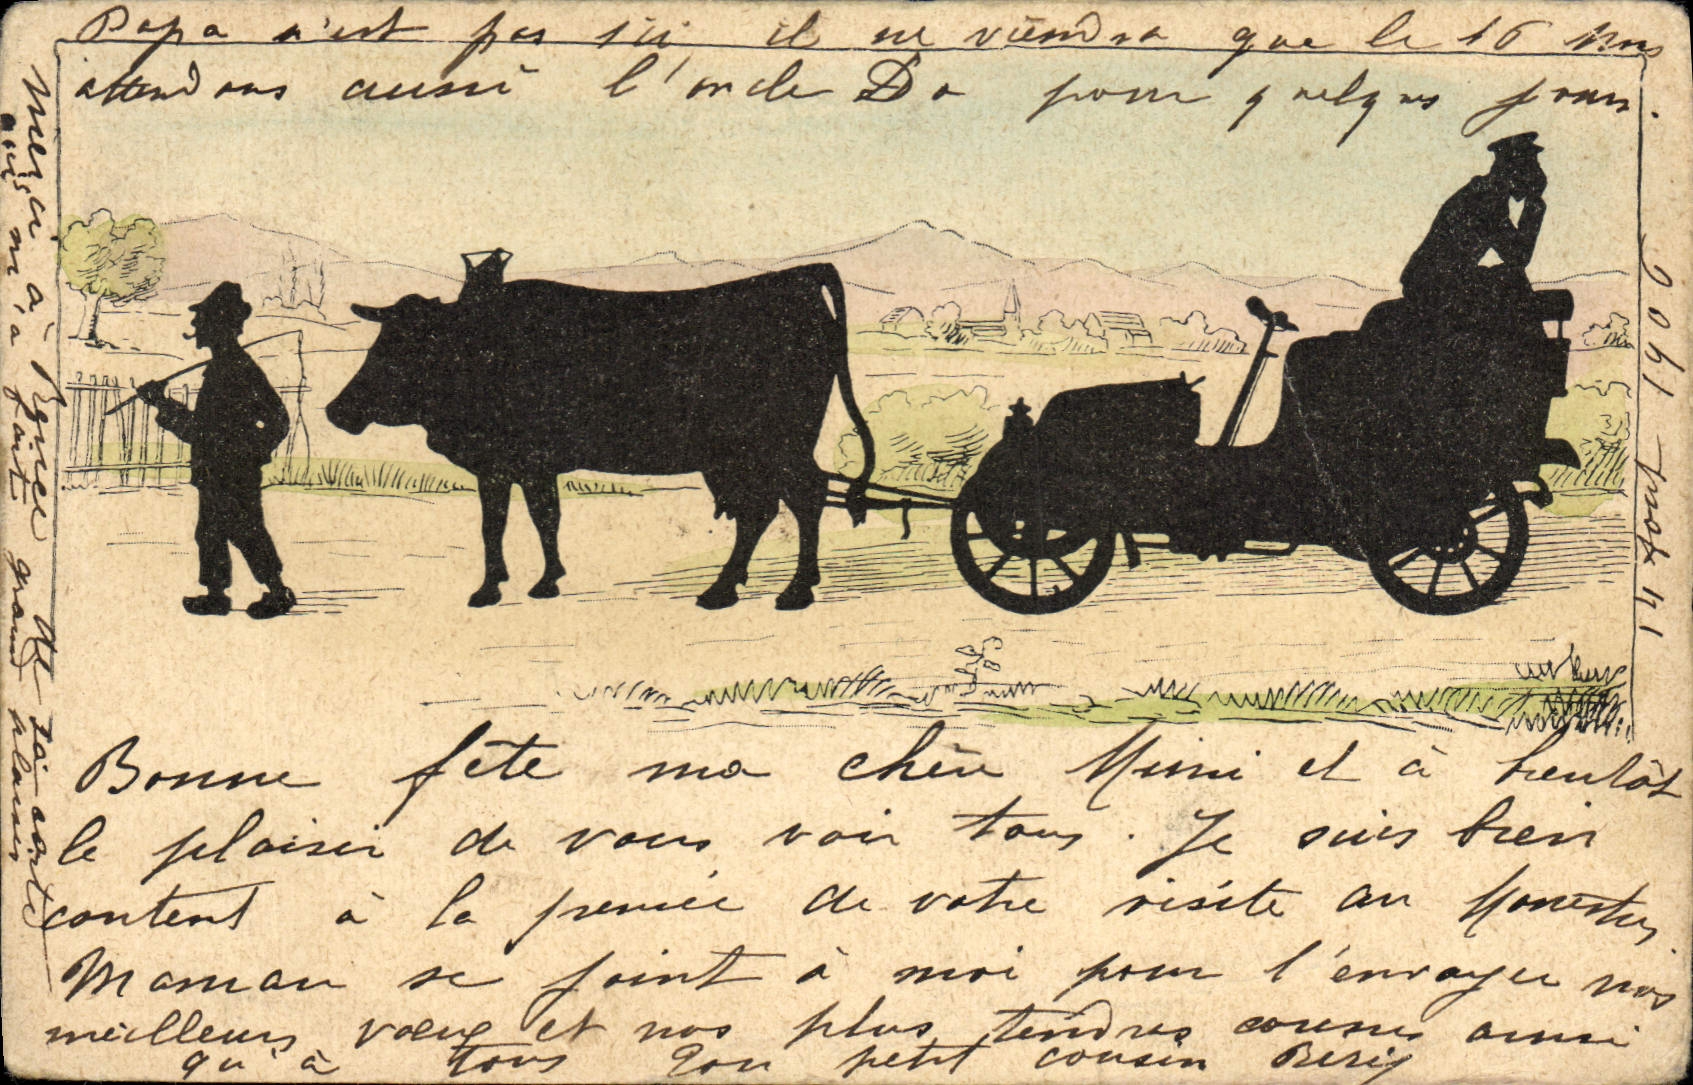 Papa n'est pas ici il ne viendra que le 16 Nous
attendons aussi l'oncle Do pour quelques jours.
14 Août 1906
Bonne fête ma chère Mimi et à bientôt
le plaisir de vous voir tous. Je suis bien
content à la pensée de votre visite au
Maman se joint à moi pour t'envoyer nos
meilleurs vœux et nos plus tendres aussi
qu'à tous Ton petit cousin
Merci à Renée de sa carte
qui m'a fait grand plaisir